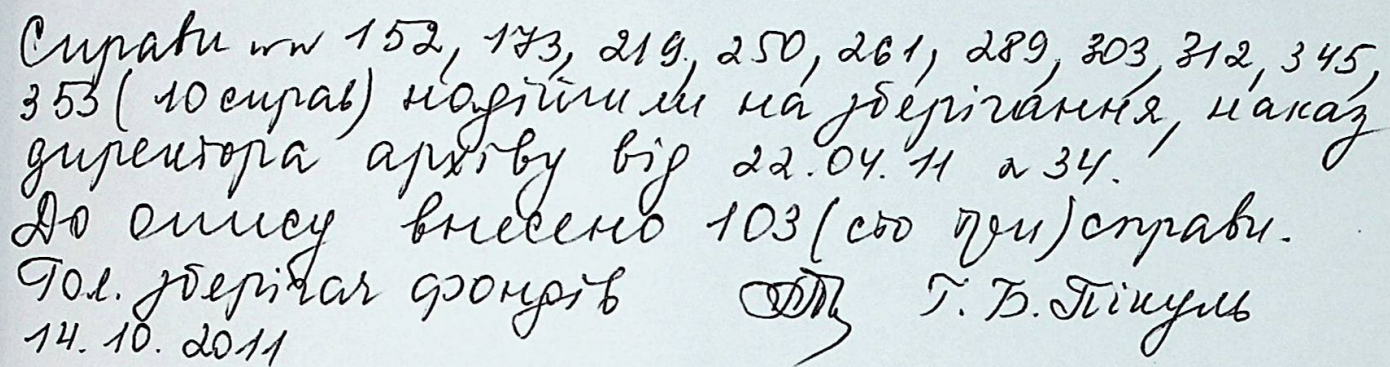 Справи №№ 152, 173, 219, 250, 261, 289, 303, 312, 345,
353 (10 справ) надійшли на зберігання, наказ
директора архіву від 22.04.11 № 34.
До опису внесено 103 (сто три) справи.
Гол. зберігач фондів Г. Б. Пікуль
14.10.2011